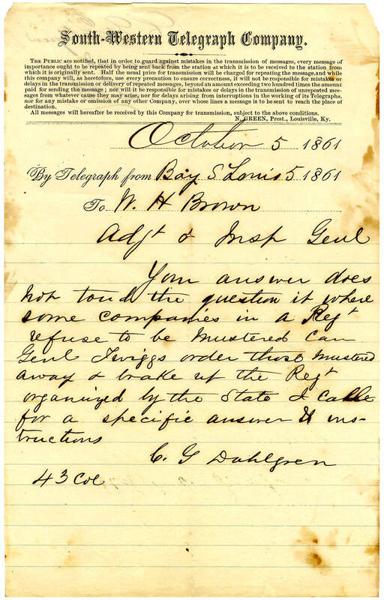 South-Western Telegraph Company.
THE PUBLIC are notified, that in order to guard against mistakes in the transmission of messages, every message of
importance ought to be repeated by being sent back from the station at which it is to be received to the station from
which it is originally sent. Half the usual price for transmission will be charged for repeating the message, and while
this company will, as heretofore, use every precaution to ensure correctness, it will not be responsible for mistakes or
delays in the transmission or delivery of repeated messages, beyond an amount exceeding two hundred times the amount
paid for sending the message; nor will it be responsible for mistakes or delays in the transmission of unrepeated mes-
sages from whatever cause they may arise, nor for delays arising from interruptions in the working of its Telegraphs,
nor for any mistake or omission of any other Company, over whose lines a message is to be sent to reach the place of
destination.
All messages will hereafter be received by this Company for transmission, subject to the above conditions.
N. GREEN, Prest., Louisville, Ky.
October 5 1861
By Telegraph from Bay S Louis 5 1861
To W. H Brown
Adjt & Insp Genl
Your answer does
not touch the question it where
some companies in a Regt
refuse to be mustered can
Genl Twiggs order those mustered
away & brake up the Regt
organized by the State I calle
for a specific answer & ins-
tructions
C G Dahlgren
43 Col